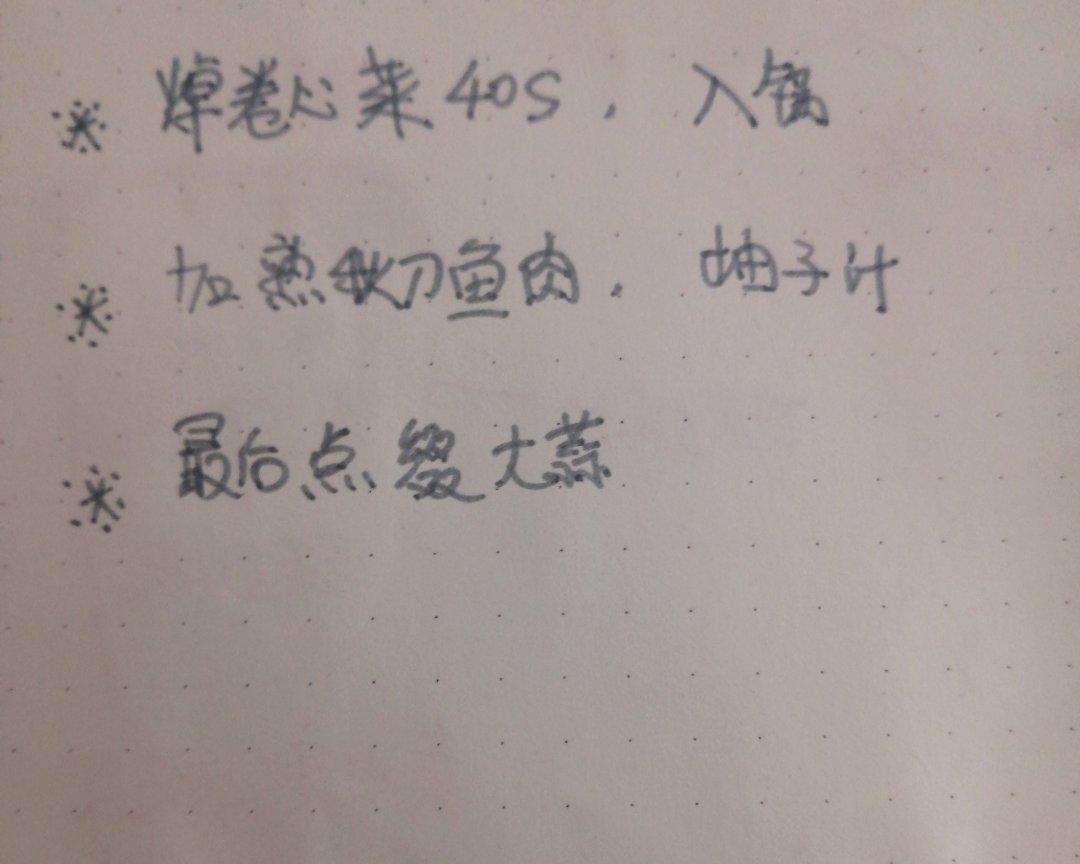 ※ 焯卷心菜40S，入锅
※ 加熟秋刀鱼肉，柚子汁
※ 最后点缀大蒜